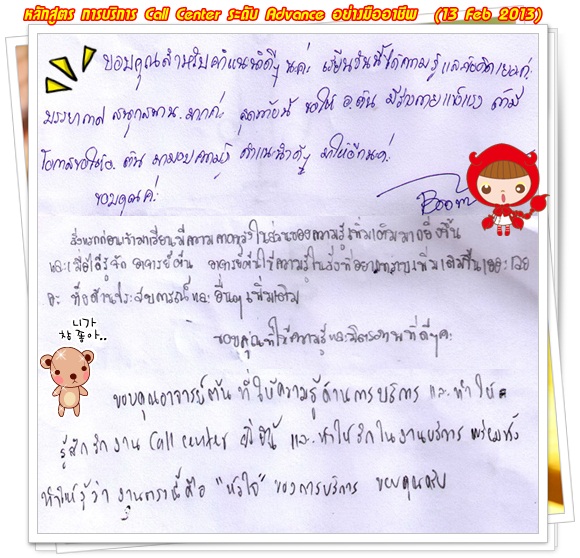 หลักสูตร การบริการ Call Center ระดับ Advance อย่างมืออาชีพ (13 Feb 2013)
ขอบคุณสำหรับคำแนะนำดีๆ นะค่ะ เรียนวันนี้ได้ความรู้ และข้อคิดเยอะค่ะ
บรรยากาศ สนุกสนาน มากค่ะ สุดท้ายนี้ ขอให้ อ.ต้น มีร่างกายแข็งแรง ถ้ามี
โอกาสขอให้อ. ต้น มามอบความรู้ คำแนะนำดีๆ มาให้อีกนะค่ะ
ขอบคุณค่ะ
สิ่งแรกก่อนเข้ามาเรียนมีความคาดหวังในส่วนของความรู้เพิ่มเติมมากยิ่งขึ้น
และเมื่อได้รู้จัก อาจารย์ต้น อาจารย์ต้นให้ความรู้ในสิ่งที่อยากทราบเพิ่มเติมขึ้นเยอะเลย
ค่ะ ทั้งด้านประสบการณ์และอื่นๆ เพิ่มเติม
ขอบคุณที่ให้ความรู้และมิตรภาพที่ดีๆ ค่ะ
니가
참 좋아..
ขอบคุณอาจารย์ต้น ที่ให้ความรู้ด้านการบริการ และทำให้
รู้สึกรักงาน Call center และทำให้รักในงานบริการ พร้อมทั้ง
ทำให้รู้ว่า งานเรานี้คือ "หัวใจ" ของการบริการ ขอบคุณครับ